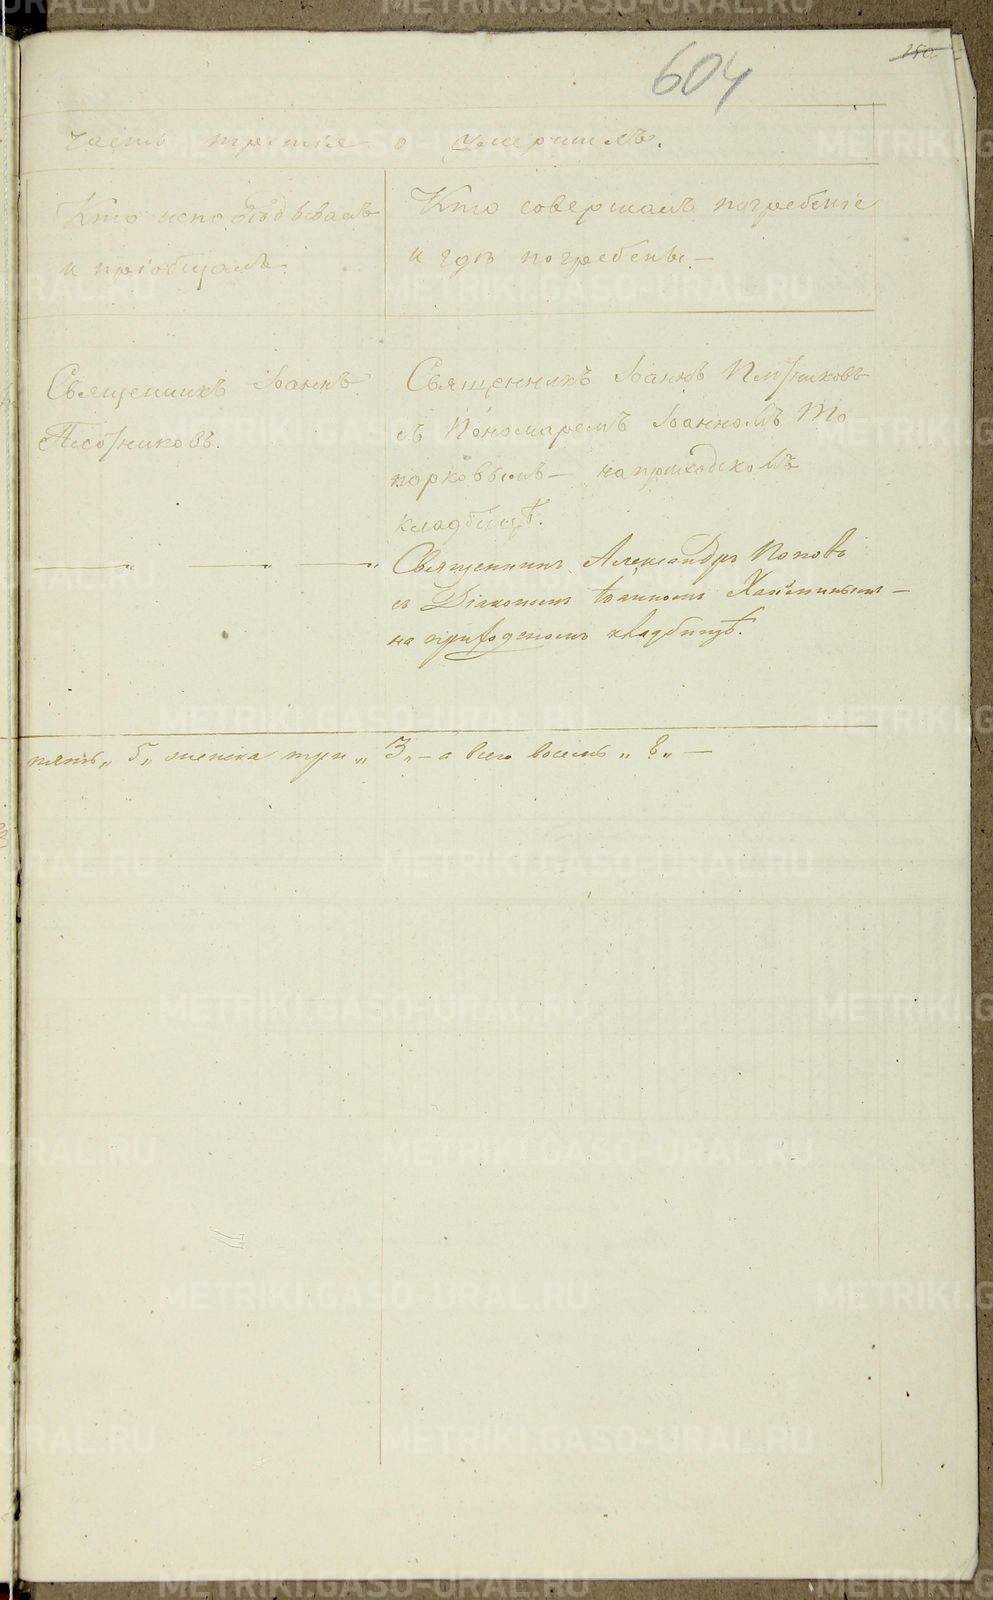 604
часть третья о умершихъ.
Кто исповѣдывалъ
и пріобщалъ
Кто совершалъ погребеніе
и гдѣ погребены. —
Священникъ Іоаннъ
Священникъ Іоаннъ
съ Пономаремъ Іоанномъ То
порковымъ — на приходскомъ
кладбищѣ.
Священникъ Александръ Поповъ
съ Діакономъ Іоанномъ
на приходскомъ кладбищѣ.
пять „ 5 „ женска три „ 3 „ — а всего восемь „ 8 „ —
METRIKI.GASO-URAL.RU